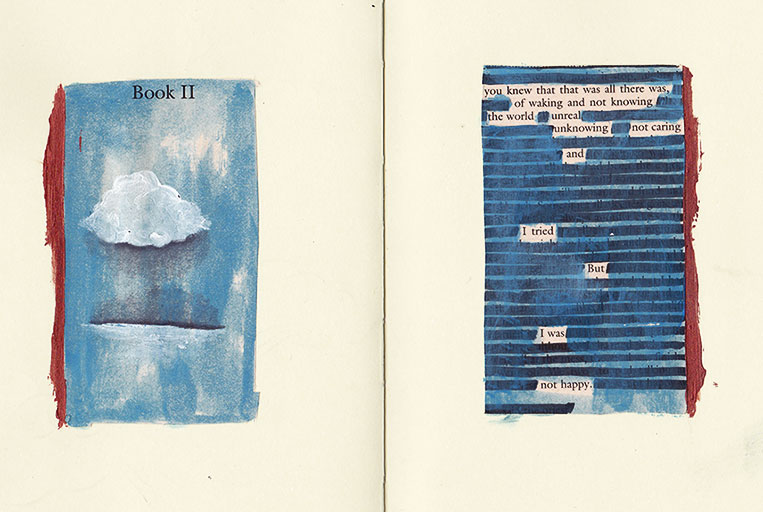 Book II
you knew that that was all there was,
of waking and not knowing
the world unreal
unknowing not caring
and
I tried
But
I was
not happy.